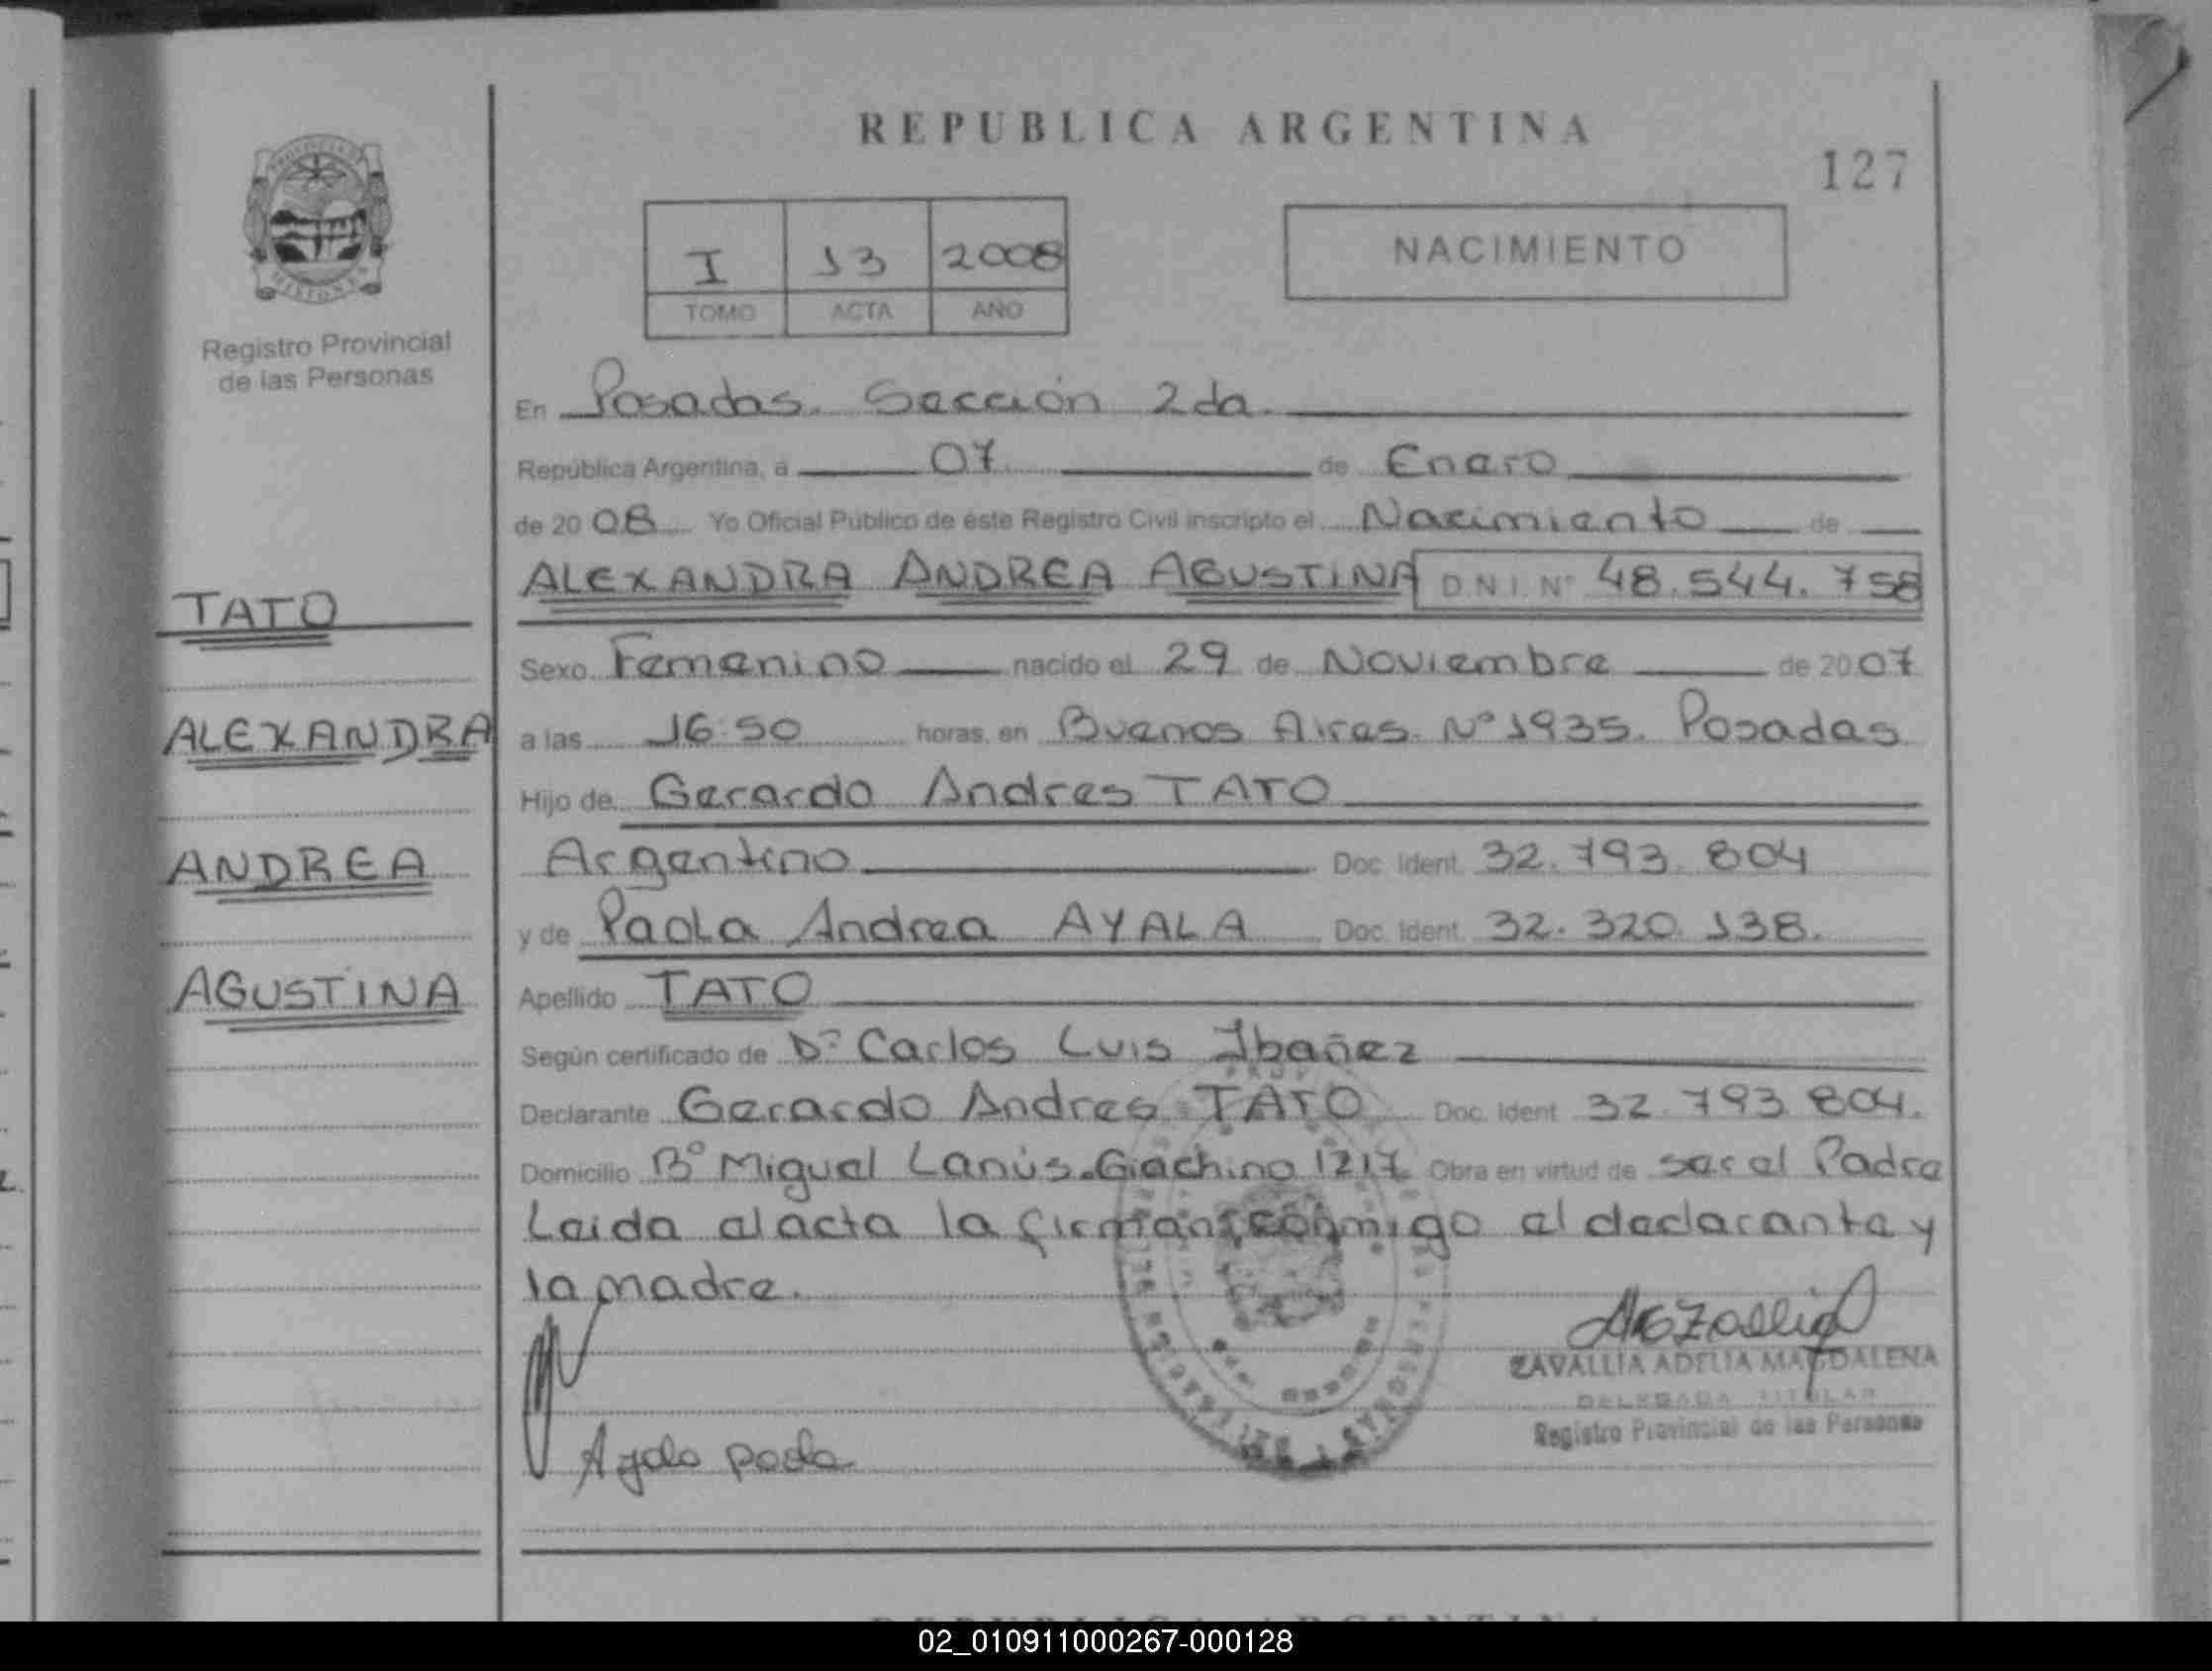 REPUBLICA ARGENTINA
127
I 13 2008
TOMO ACTA AÑO
NACIMIENTO
Registro Provincial
de las Personas
En Posadas. Sección 2da.
República Argentina, a 07 de Enero
de 2008 Yo Oficial Público de éste Registro Civil inscripto el Nacimiento de
ALEXANDRA ANDREA AGUSTINA D.N.I. Nº 48.544.758
TATO
Sexo Femenino nacido el 29 de Noviembre de 2007
ALEXANDRA
a las 16:50 horas, en Buenos Aires Nº 1935. Posadas
Hijo de Gerardo Andres TATO
ANDREA
Argentino Doc. Ident. 32.793.804
y de Paola Andrea AYALA Doc. Ident. 32.320.138.
AGUSTINA
Apellido TATO
Según certificado de Dr Carlos Luis Ibañez
Declarante Gerardo Andres TATO Doc. Ident 32.793.804.
Domicilio Bº Miguel Lanús-Giachino 1217 Obra en virtud de ser el Padre
Leida el acta la firman conmigo el declarante y
la madre.
ZAVALLIA ADELIA MAGDALENA
DELEGADA TITULAR
Registro Provincial de las Personas
Ayala paola
02_010911000267-000128